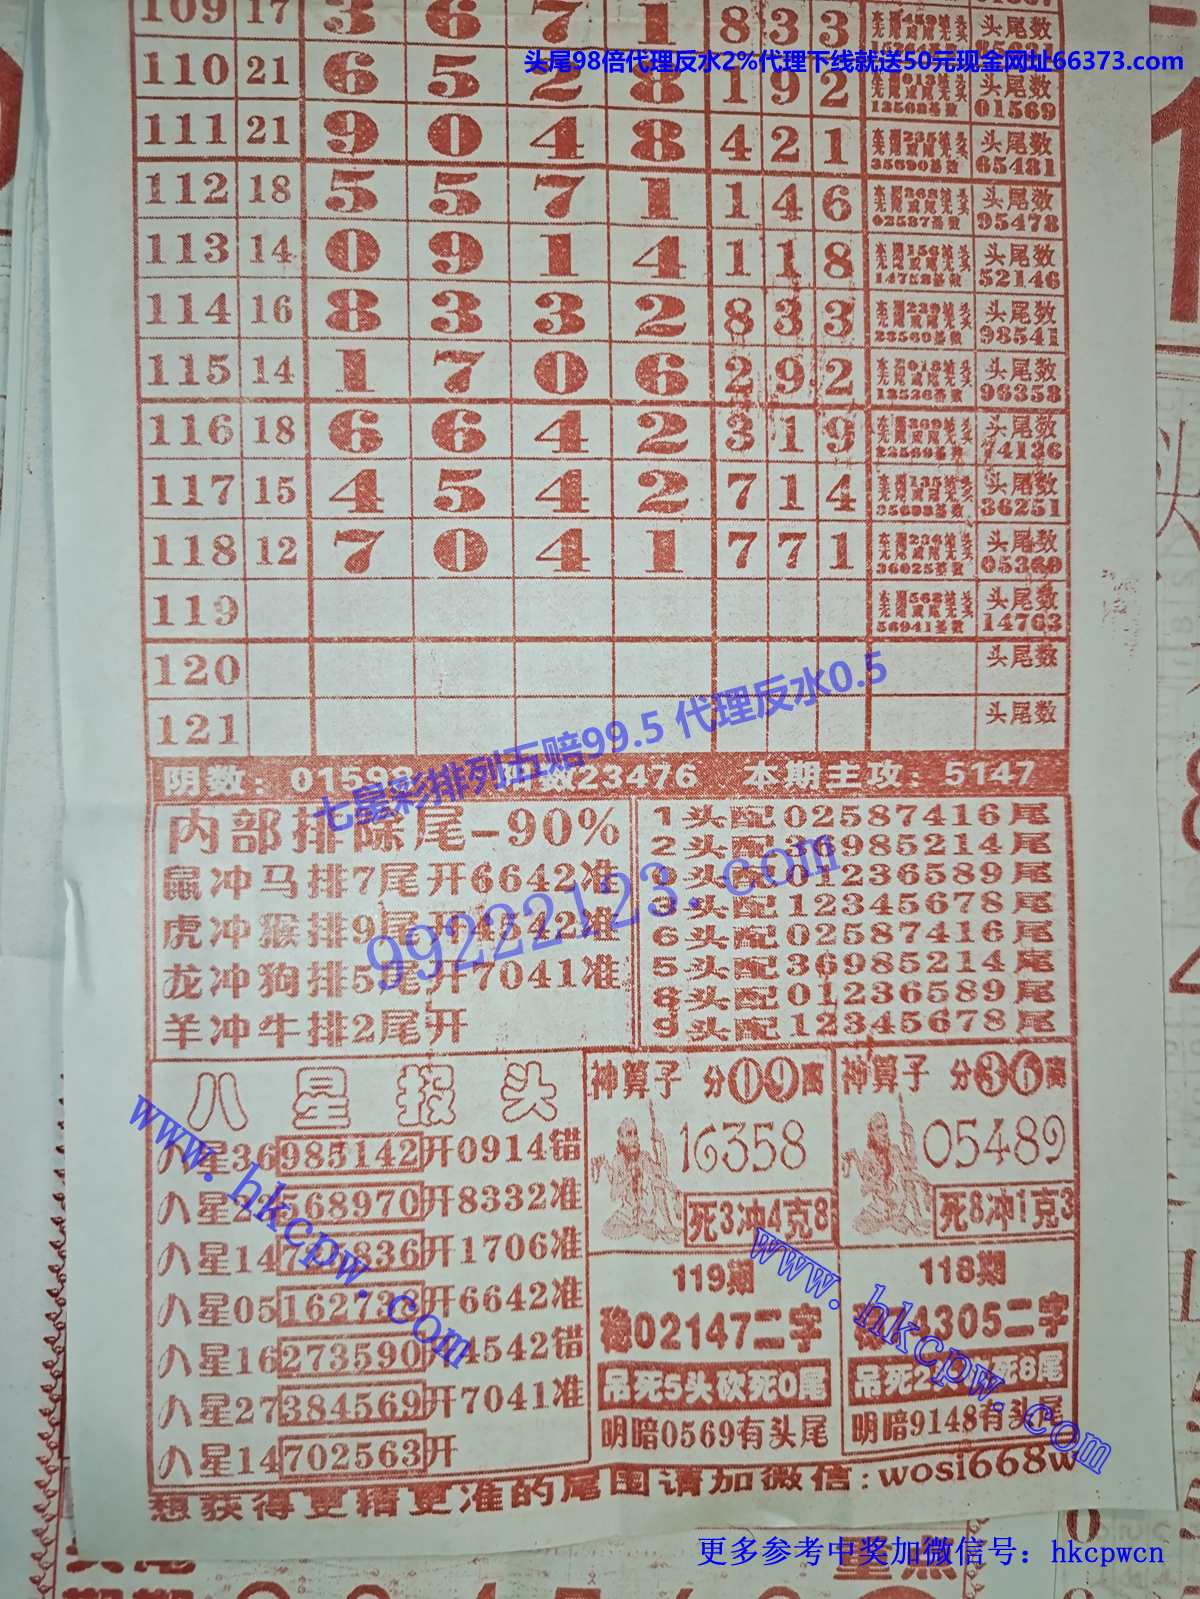 109 17 3 6 7 1 8 3 3 头尾数
头尾98倍代理反水2%代理下线就送50元现金网址66373.com
110 21 6 5 2 8 1 9 2 头尾数 01569
111 21 9 0 4 8 4 2 1 头尾数 65481
112 18 5 5 7 1 1 4 6 头尾数 95478
113 14 0 9 1 4 1 1 8 头尾数 52146
114 16 8 3 3 2 8 3 3 头尾数 98541
115 14 1 7 0 6 2 9 2 头尾数 96358
116 18 6 6 4 2 3 1 9 头尾数 74136
117 15 4 5 4 2 7 1 4 头尾数 36251
118 12 7 0 4 1 7 7 1 头尾数 05360
119 头尾数 14763
120 头尾数
121 头尾数
七星彩排列五赔99.5 代理反水0.5
阴数：01598 阳数23476 本期主攻：5147
内部排除尾-90%
鼠冲马排7尾开6642准
虎冲猴排9尾开4542准
龙冲狗排5尾开7041准
羊冲牛排2尾开
1头配02587416尾
2头配36985214尾
0头配01236589尾
3头配12345678尾
6头配02587416尾
5头配36985214尾
8头配01236589尾
9头配12345678尾
99222123.com
八星报头
八星36985142开0914错
八星22568970开8332准
八星14 836开1706准
八星05162738开6642准
八星16273590开4542错
八星27384569开7041准
八星14702563开
神算子 分09离
16358
死3冲4克8
119期
稳02147二字
吊死5头砍死0尾
明暗0569有头尾
神算子 分36离
05489
死8冲1克3
118期
4305二字
吊死2 死8尾
明暗9148有头尾
www.hkcpw.com
www.hkcpw.com
想获得更精更准的尾围请加微信:wosi668w
更多参考中奖加微信号：hkcpwcn
重点